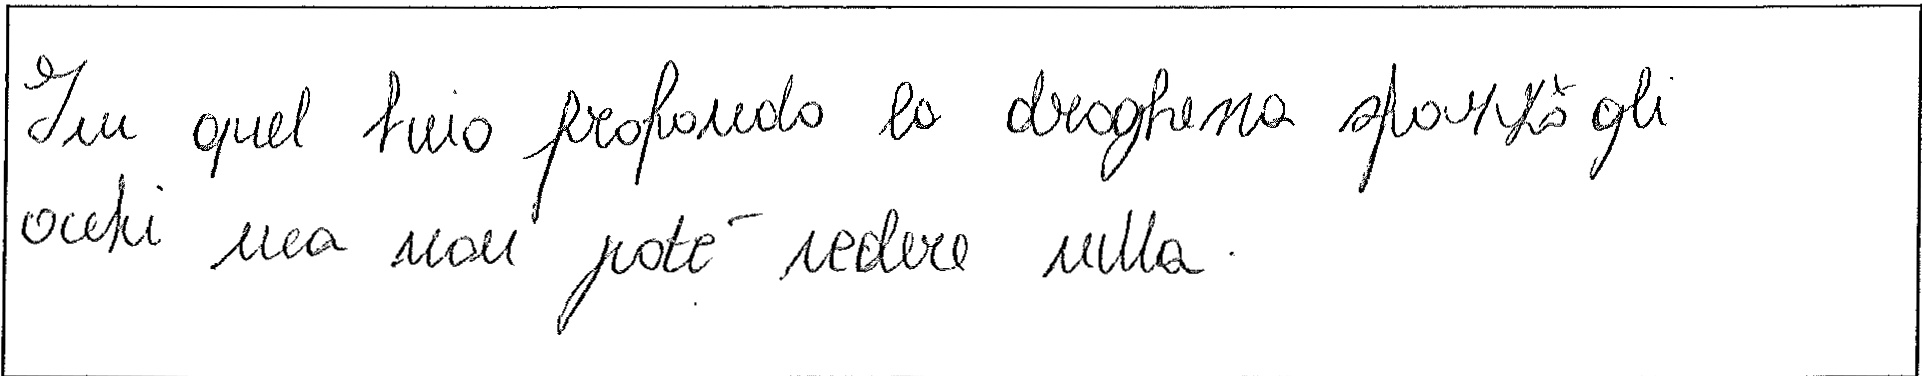 In quel buio profondo la draghessa spalancò gli
occhi ma non potè vedere nulla.